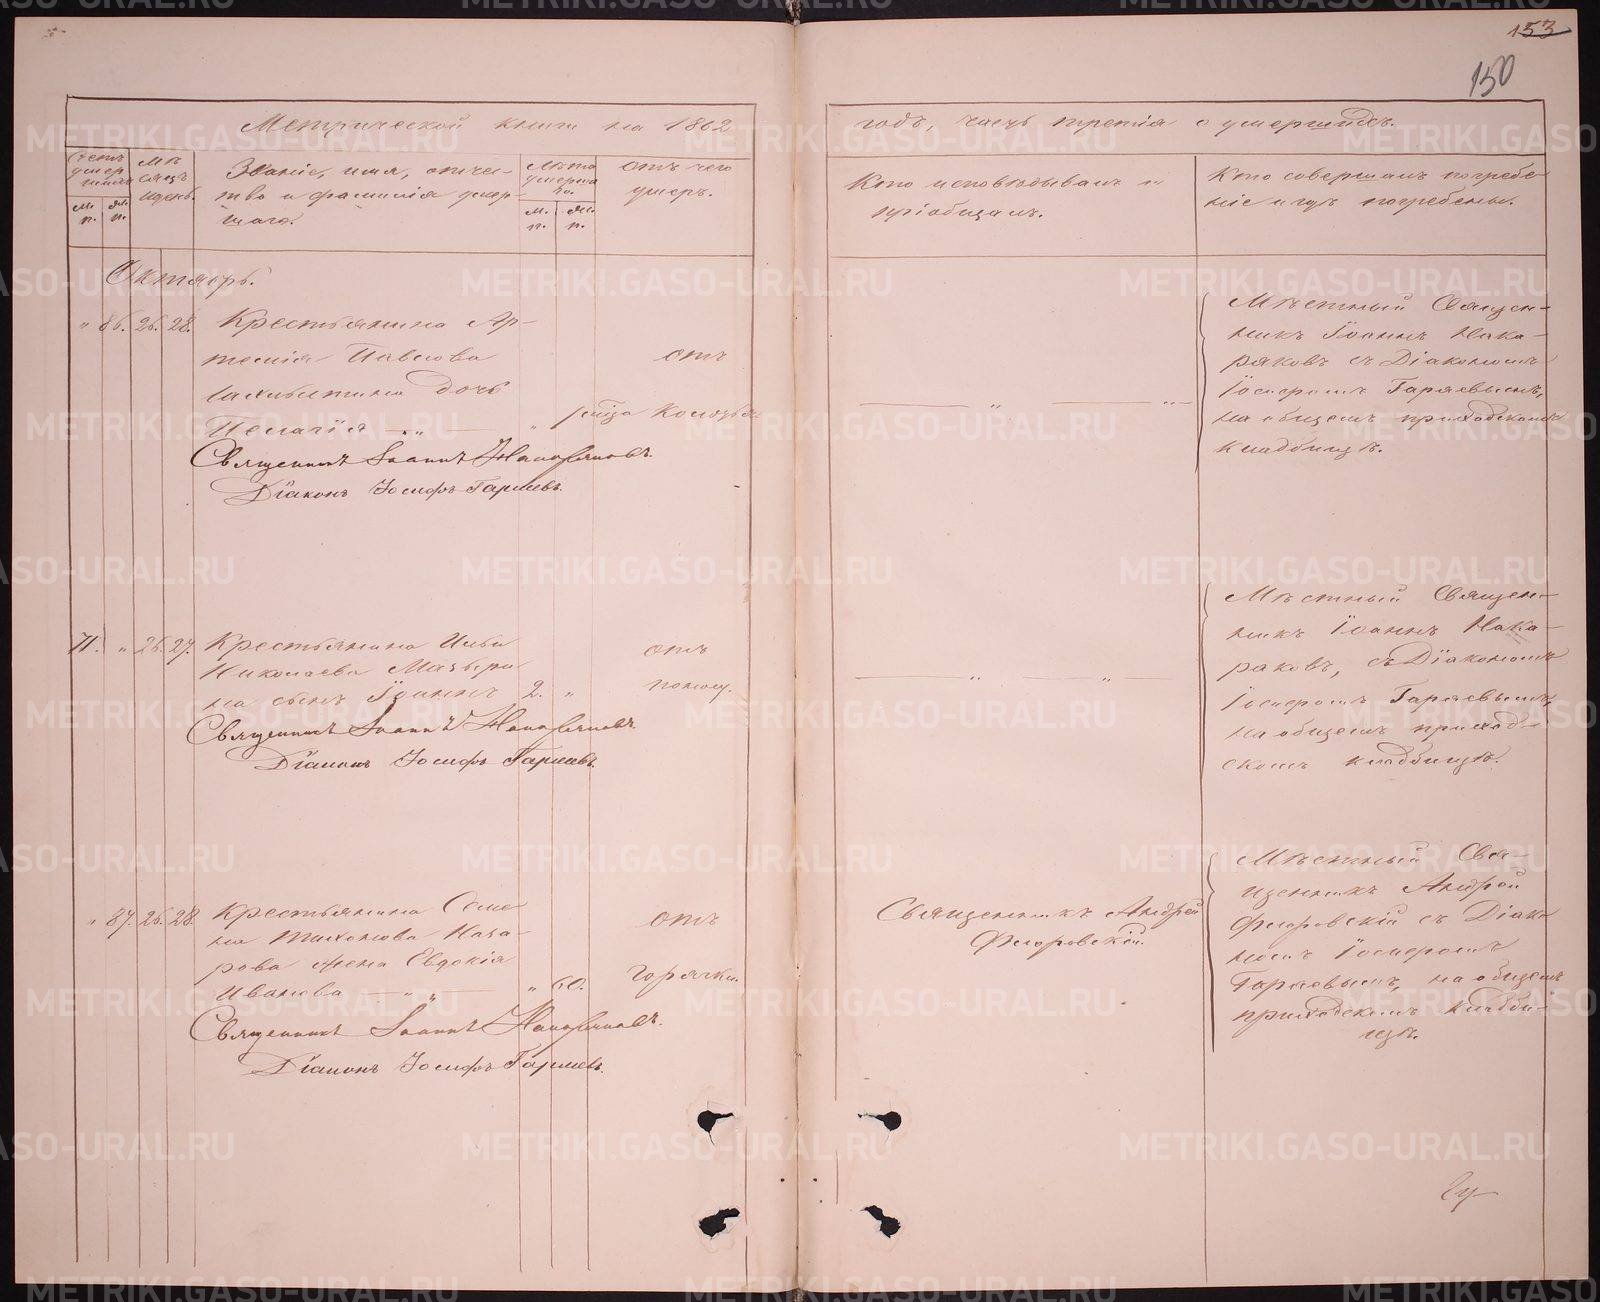 153
150
Метрической книги на 1862
годъ, часть третія о умершихъ.
Счетъ умершихъ
М. п.
Ж. п.
Мѣсяцъ и день.
Званіе, имя, отче-
ство и фамилія умер-
шаго.
Лѣта умершаго.
М. п.
Ж. п.
Отъ чего
умеръ.
Кто исповѣдывалъ и
пріобщалъ.
Кто совершалъ погребе
ніе и гдѣ погребены.
Октябрь.
" 86. 26. 28. Крестьянина Ар-
темія Павлова
дочь
Пелагія "
отъ
Священникъ Іоаннъ Накаряковъ.
Діаконъ Іосифъ Гаряевъ.
"
Мѣстный Священ-
никъ Іоаннъ Нака-
ряковъ съ Діакономъ
Іосифомъ Гаряевымъ,
на общемъ приходскомъ
кладбищѣ.
71. " 26. 27. Крестьянина Ильи
Николаева Мазыри
на сынъ Іоаннъ 2. "
отъ
поносу.
Священникъ Іоаннъ Накаряковъ.
Діаконъ Іосифъ Гаряевъ.
" "
Мѣстный Священ-
никъ Іоаннъ Нака-
ряковъ, съ Діакономъ
Іосифомъ Гаряевымъ,
на общемъ приход-
скомъ кладбищѣ.
" 87. 26. 28. Крестьянина Семе
на Тихонова Наза-
рова жена Евдокія
Иванова " " 60.
отъ
горячки.
Священникъ Іоаннъ Накаряковъ.
Діаконъ Іосифъ Гаряевъ.
Священникъ Андрей
Флоровскій.
Мѣстный Свя-
щенникъ Андрей
Флоровскій съ Діако
номъ Іосифомъ
Гаряевымъ, на общемъ
приходскомъ кладби-
щѣ.
METRIKI.GASO-URAL.RU